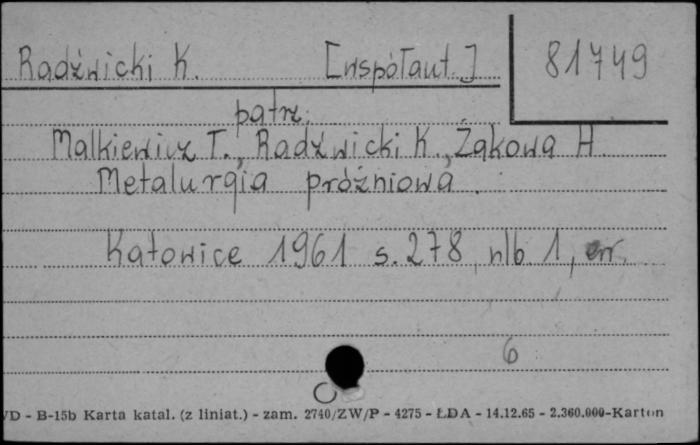 Radźwicki K. [współaut.] 81749
patrz:
Malkiewicz T., Radźwicki K., Żąkowa H
Metalurgia próżniowa.
Katowice 1961 s. 278, nlb 1, err.
6
VD - B-15b Karta katal. (z liniat.) - zam. 2740/ZW/P - 4275 - ŁDA - 14.12.65 - 2.360.000-Karton